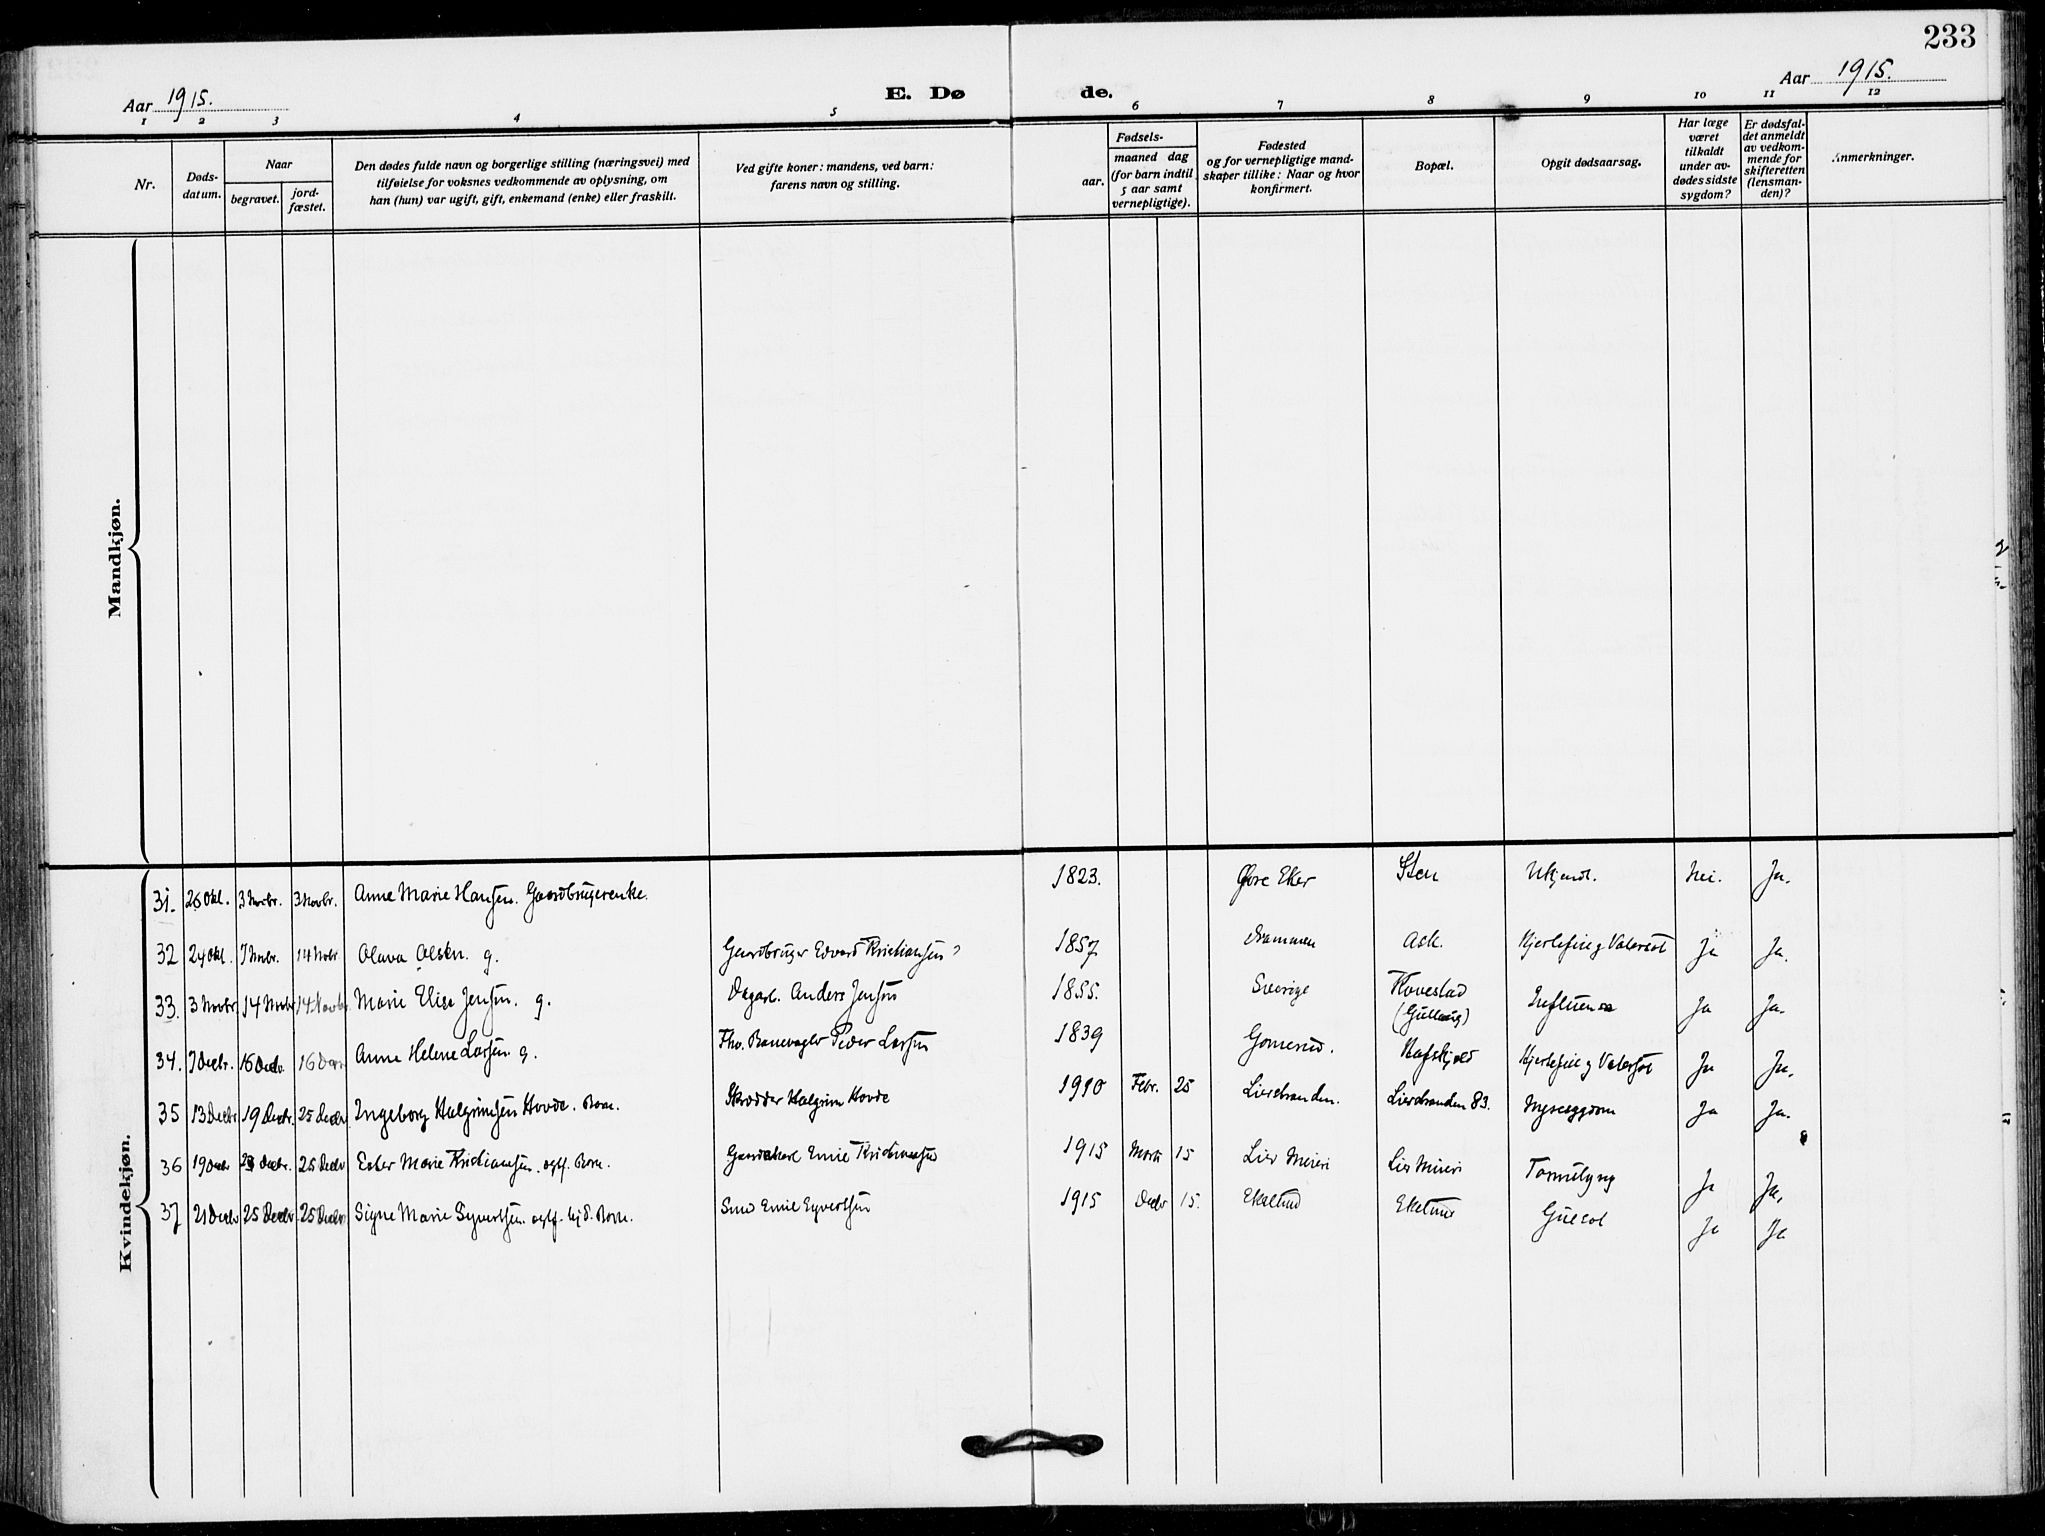 233
Aar 1915.
E. Døde.
Aar 1915.
1 2 3 4 5 6 7 8 9 10 11 12
Nr.
Døds-
datum.
Naar
begravet.
jord-
fæstet.
Den dødes fulde navn og borgerlige stilling (næringsvei) med
tilføielse for voksnes vedkommende av oplysning, om
han (hun) var ugift, gift, enkemand (enke) eller fraskilt.
Ved gifte koner: mandens, ved barn:
farens navn og stilling.
Fødsels-
aar.
maaned dag
(for barn indtil
5 aar samt
vernepligtige).
Fødested
og for vernepligtige mand-
skaper tillike: Naar og hvor
konfirmert.
Bopæl.
Opgit dødsaarsag.
Har læge
været
tilkaldt
under av-
dødes sidste
sygdom?
Er dødsfal-
det anmeldt
av vedkom-
mende for
skifteretten
(lensman-
den)?
Anmerkninger.
Mandkjøn.
Kvindekjøn.
31. 26 Okt. 3 Novbr. 3 Novbr. Anne Marie Hansen. Gaardbrugerenke. 1823. Øvre Eker Sten Ukjendt. Nei. Ja.
32 24 Okt. 7 Novbr. 14 Novbr Olava Olsen. g. Gaardbruger Edvard Kristiansen 1857 Drammen Ask. Hjertefeil og Vatersot Ja Ja.
33. 3 Novbr. 14 Novbr 14 Novbr Marie Elise Jensen. g. Dagarb. Anders Jensen 1855. Sverige Hovestad (Gullaug) Influensa Ja Ja.
34. 7 Decbr. 16 Decbr 16 Decbr Anne Helene Larsen. g. Fhv. Banevogter Peder Larsen 1839 Gomerud. Hafskjold Hjertefeil og Vatersot Ja Ja.
35 13 Decbr 19 Decbr. 25 Decbr Ingeborg Halgrimsen Hovde. Barn. Skrædder Halgrim Hovde 1910 Febr. 25 Lierstranden. Lierstranden 83. Nyresygdom Ja Ja.
36 19 Decbr 25 Decbr 25 Decbr Ester Marie Kristiansen. egtf. Barn. Gaardskarl Emil Kristiansen 1915 Marts 15 Lier Meieri Lier Meieri Tarmslyng Ja Ja.
37 21 Decbr 25 Decbr 25 Decbr Signe Marie Syvertsen. egtf. Barn. Smed Emil Syvertsen 1915 Decbr 15. Ekelund Ekelund Gulsot Ja Ja